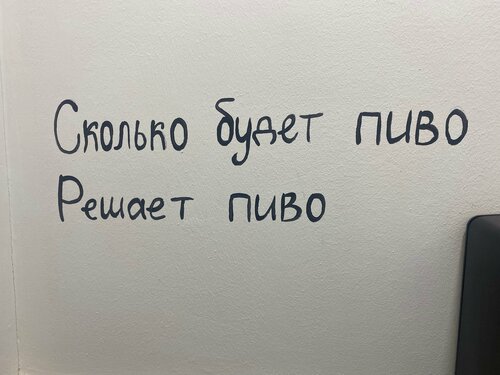 Сколько будет пиво
Решает пиво